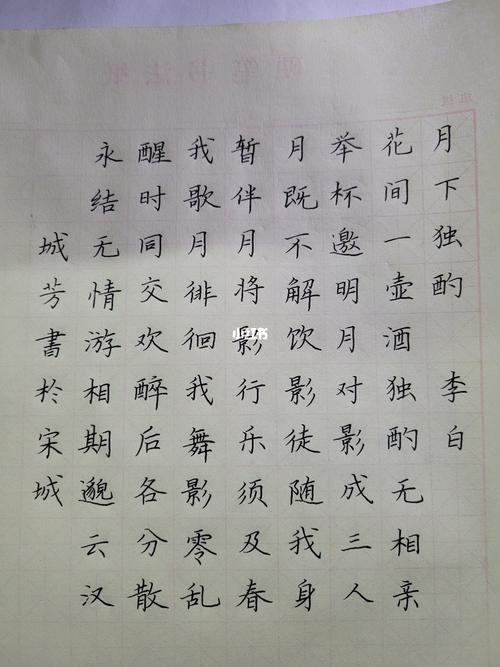 硬笔书法纸
班级
月下独酌 李白
花间一壶酒独酌无相亲
举杯邀明月对影成三人
月既不解饮影徒随我身
暂伴月将影行乐须及春
我歌月徘徊我舞影零乱
醒时同交欢醉后各分散
永结无情游相期邈云汉
城芳書於宋城
小红书